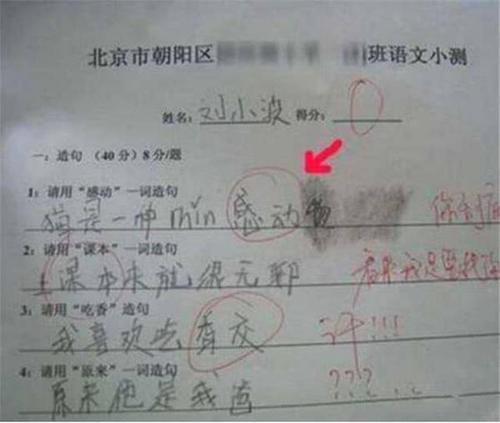 北京市朝阳区 班语文小测
姓名: 刘小波 得分: 0
一: 造句 (40分) 8分/题
1: 请用“感动”一词造句
猫是一种min感动物 你
2: 请用“课本”一词造句
上课本来就很无聊 看来我是
3: 请用“吃香”造句
我喜欢吃香交 汗!!!
4: 请用“原来”一词造句
原来他是我爸 ???...